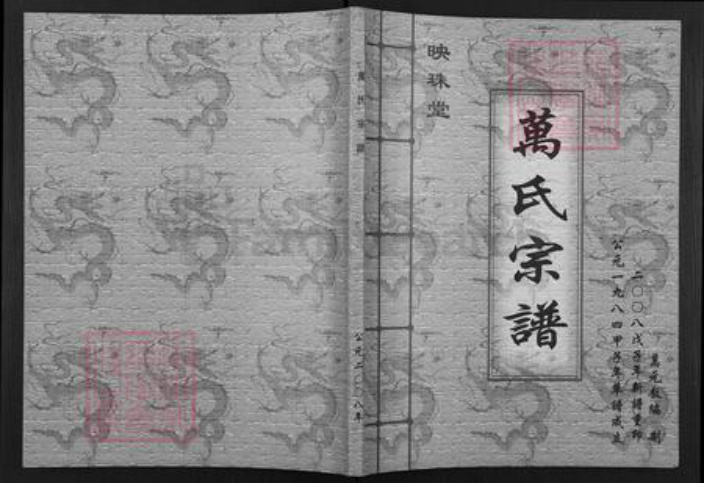 映珠堂
萬氏宗譜
二〇〇八戊子年新譜重印
公元一九八四甲子年草譜成立
萬氏宗譜
公元二〇〇八年